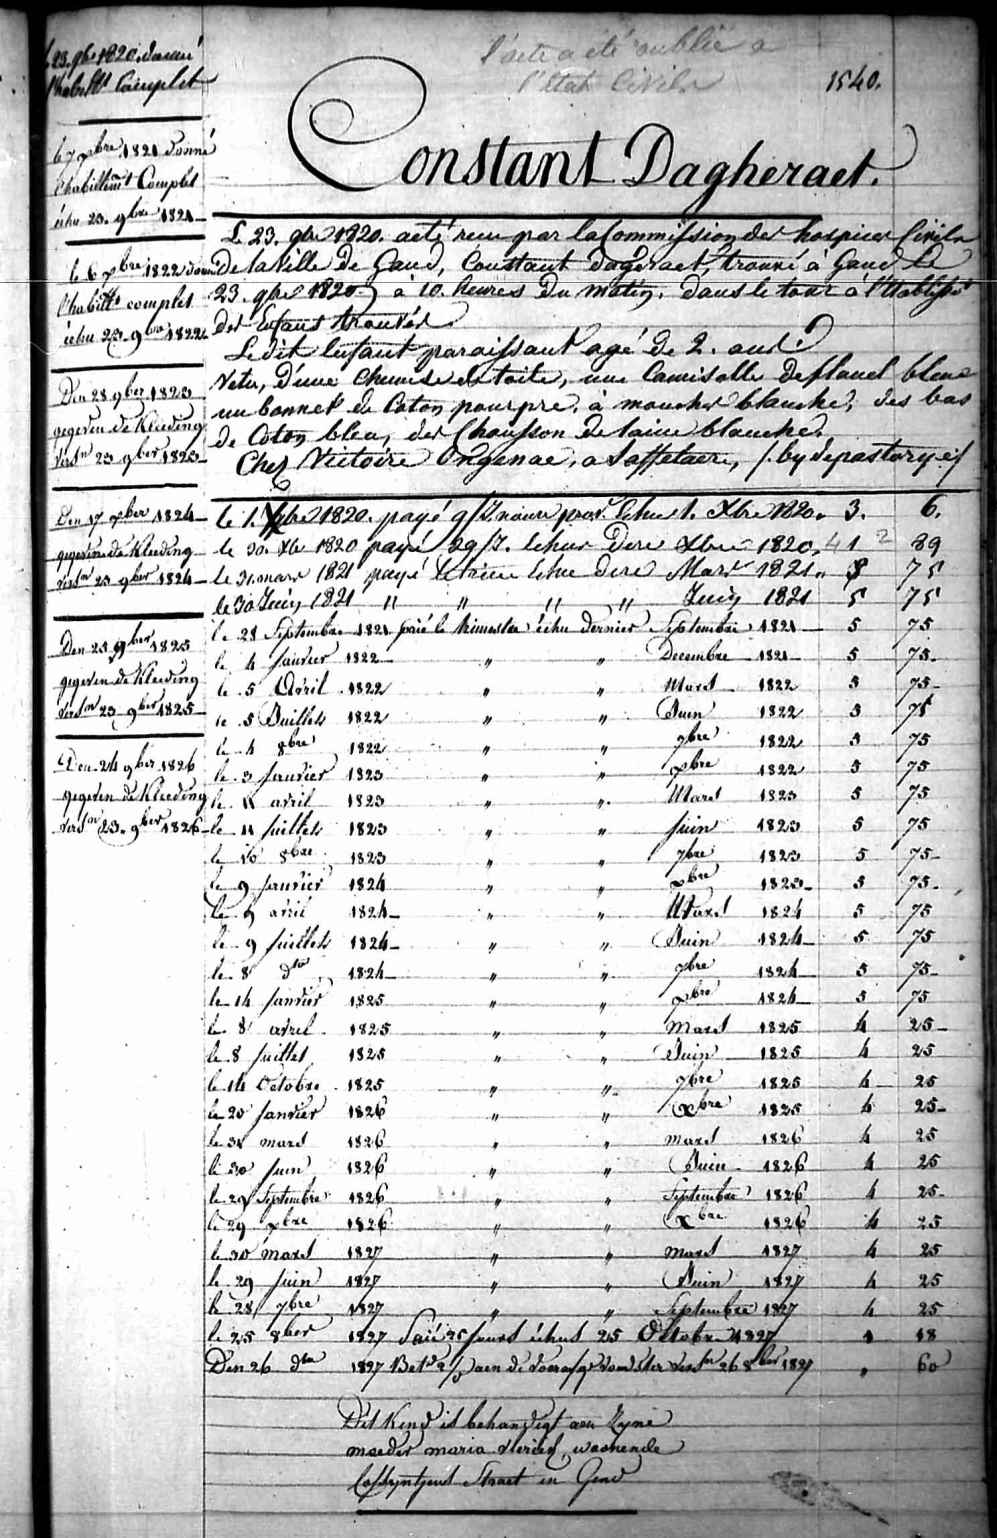 l'acte a été oublié a
l'Etat Civil
1540.
Constant Dagheraet.
Le 23. 9bre 1820. donné
l'habillt Complet
le 7 xbre 1821 donné
l'habillemt Complet
échu 23. 9bre 1821
le 6 xbre 1822 donné
l'habillt complet
échu 23. 9bre 1822
Den 28 9ber 1823
gegeven de Kleeding
23 9ber 1823
Den 17 xber 1824
gegeven de Kleeding
23 9ber 1824
Den 25 9ber 1825
gegeven de Kleeding
23 9ber 1825
Den 24 9ber 1826
gegeven de Kleeding
23. 9ber 1826
Le 23. 9bre 1820. acté reçu par la Commission des hospices Civils
De la Ville de Gand, Constant Dageraet, trouvé à Gand le
23. 9bre 1820. à 10. heures du matin. dans le tour à l'Etablisst
des Enfans trouvés.
Le dit Enfant paraissant agé de 2. ans.
Vetu, D'une chemise de toile, une Camisolle de flanel bleue
un bonnet de Coton pourpre, à mouches blanche, des bas
de Coton bleu, des Chausson de laine blanche.
Chez Victoire Ongenae, a Saffelaere,
le 1. Xbre 1820. payé échu 1. Xbre 1820. 3. 6.
le 30 Xbr 1820 payé 29/J. échus Xbre 1820. 1 89
le 31 mars 1821 payé échu Mars 1821 5 75
le 30 Juin 1821 " " " " Juin 1821 5 75
le 28 Septembre 1821 paié le trimestre échu dernier Septembre 1821 5 75
le 4 Janvier 1822 " " Decembre 1821 5 75
le 5 Avril 1822 " " Mars 1822 5 75
le 5 Juillet 1822 " " Juin 1822 5 75
le 4 8bre 1822 " " 7bre 1822 5 75
le 3 Janvier 1823 " " xbre 1822 5 75
le avril 1823 " " Mars 1823 5 75
le 11 Juillet 1823 " " Juin 1823 5 75
le 10 8bre 1823 " " 7bre 1823 5 75
le 9 Janvier 1824 " " xbre 1823 5 75
le 9 avril 1824 " " Mars 1824 5 75
le 9 Juillet 1824 " " Juin 1824 5 75
le 8 1824 " " 7bre 1824 5 75
le 14 Janvier 1825 " " xbre 1824 5 75
le 8 avril 1825 " " Mars 1825 4 25
le 8 Juillet 1825 " " Juin 1825 4 25
le 14 Octobre 1825 " " 7bre 1825 4 25
le 20 Janvier 1826 " " Xbre 1825 4 25
le 31 mars 1826 " " mars 1826 4 25
le 30 Juin 1826 " " Juin 1826 4 25
le 29 Septembre 1826 " " Septembre 1826 4 25
le 29 xbre 1826 " " Xbre 1826 4 25
le 30 mars 1827 " " mars 1827 4 25
le 29 Juin 1827 " " Juin 1827 4 25
le 28 7bre 1827 " " Septembre 1827 4 25
le 25 8ber 1827 Paié 25 Jours échus 25 Octobre 1827 1 18
Den 26 dto 1827 aen de 26 8ber 1827 " 60
Dit Kind is behandigt aen Zyne
moeder maria woonende
Straet in Gend